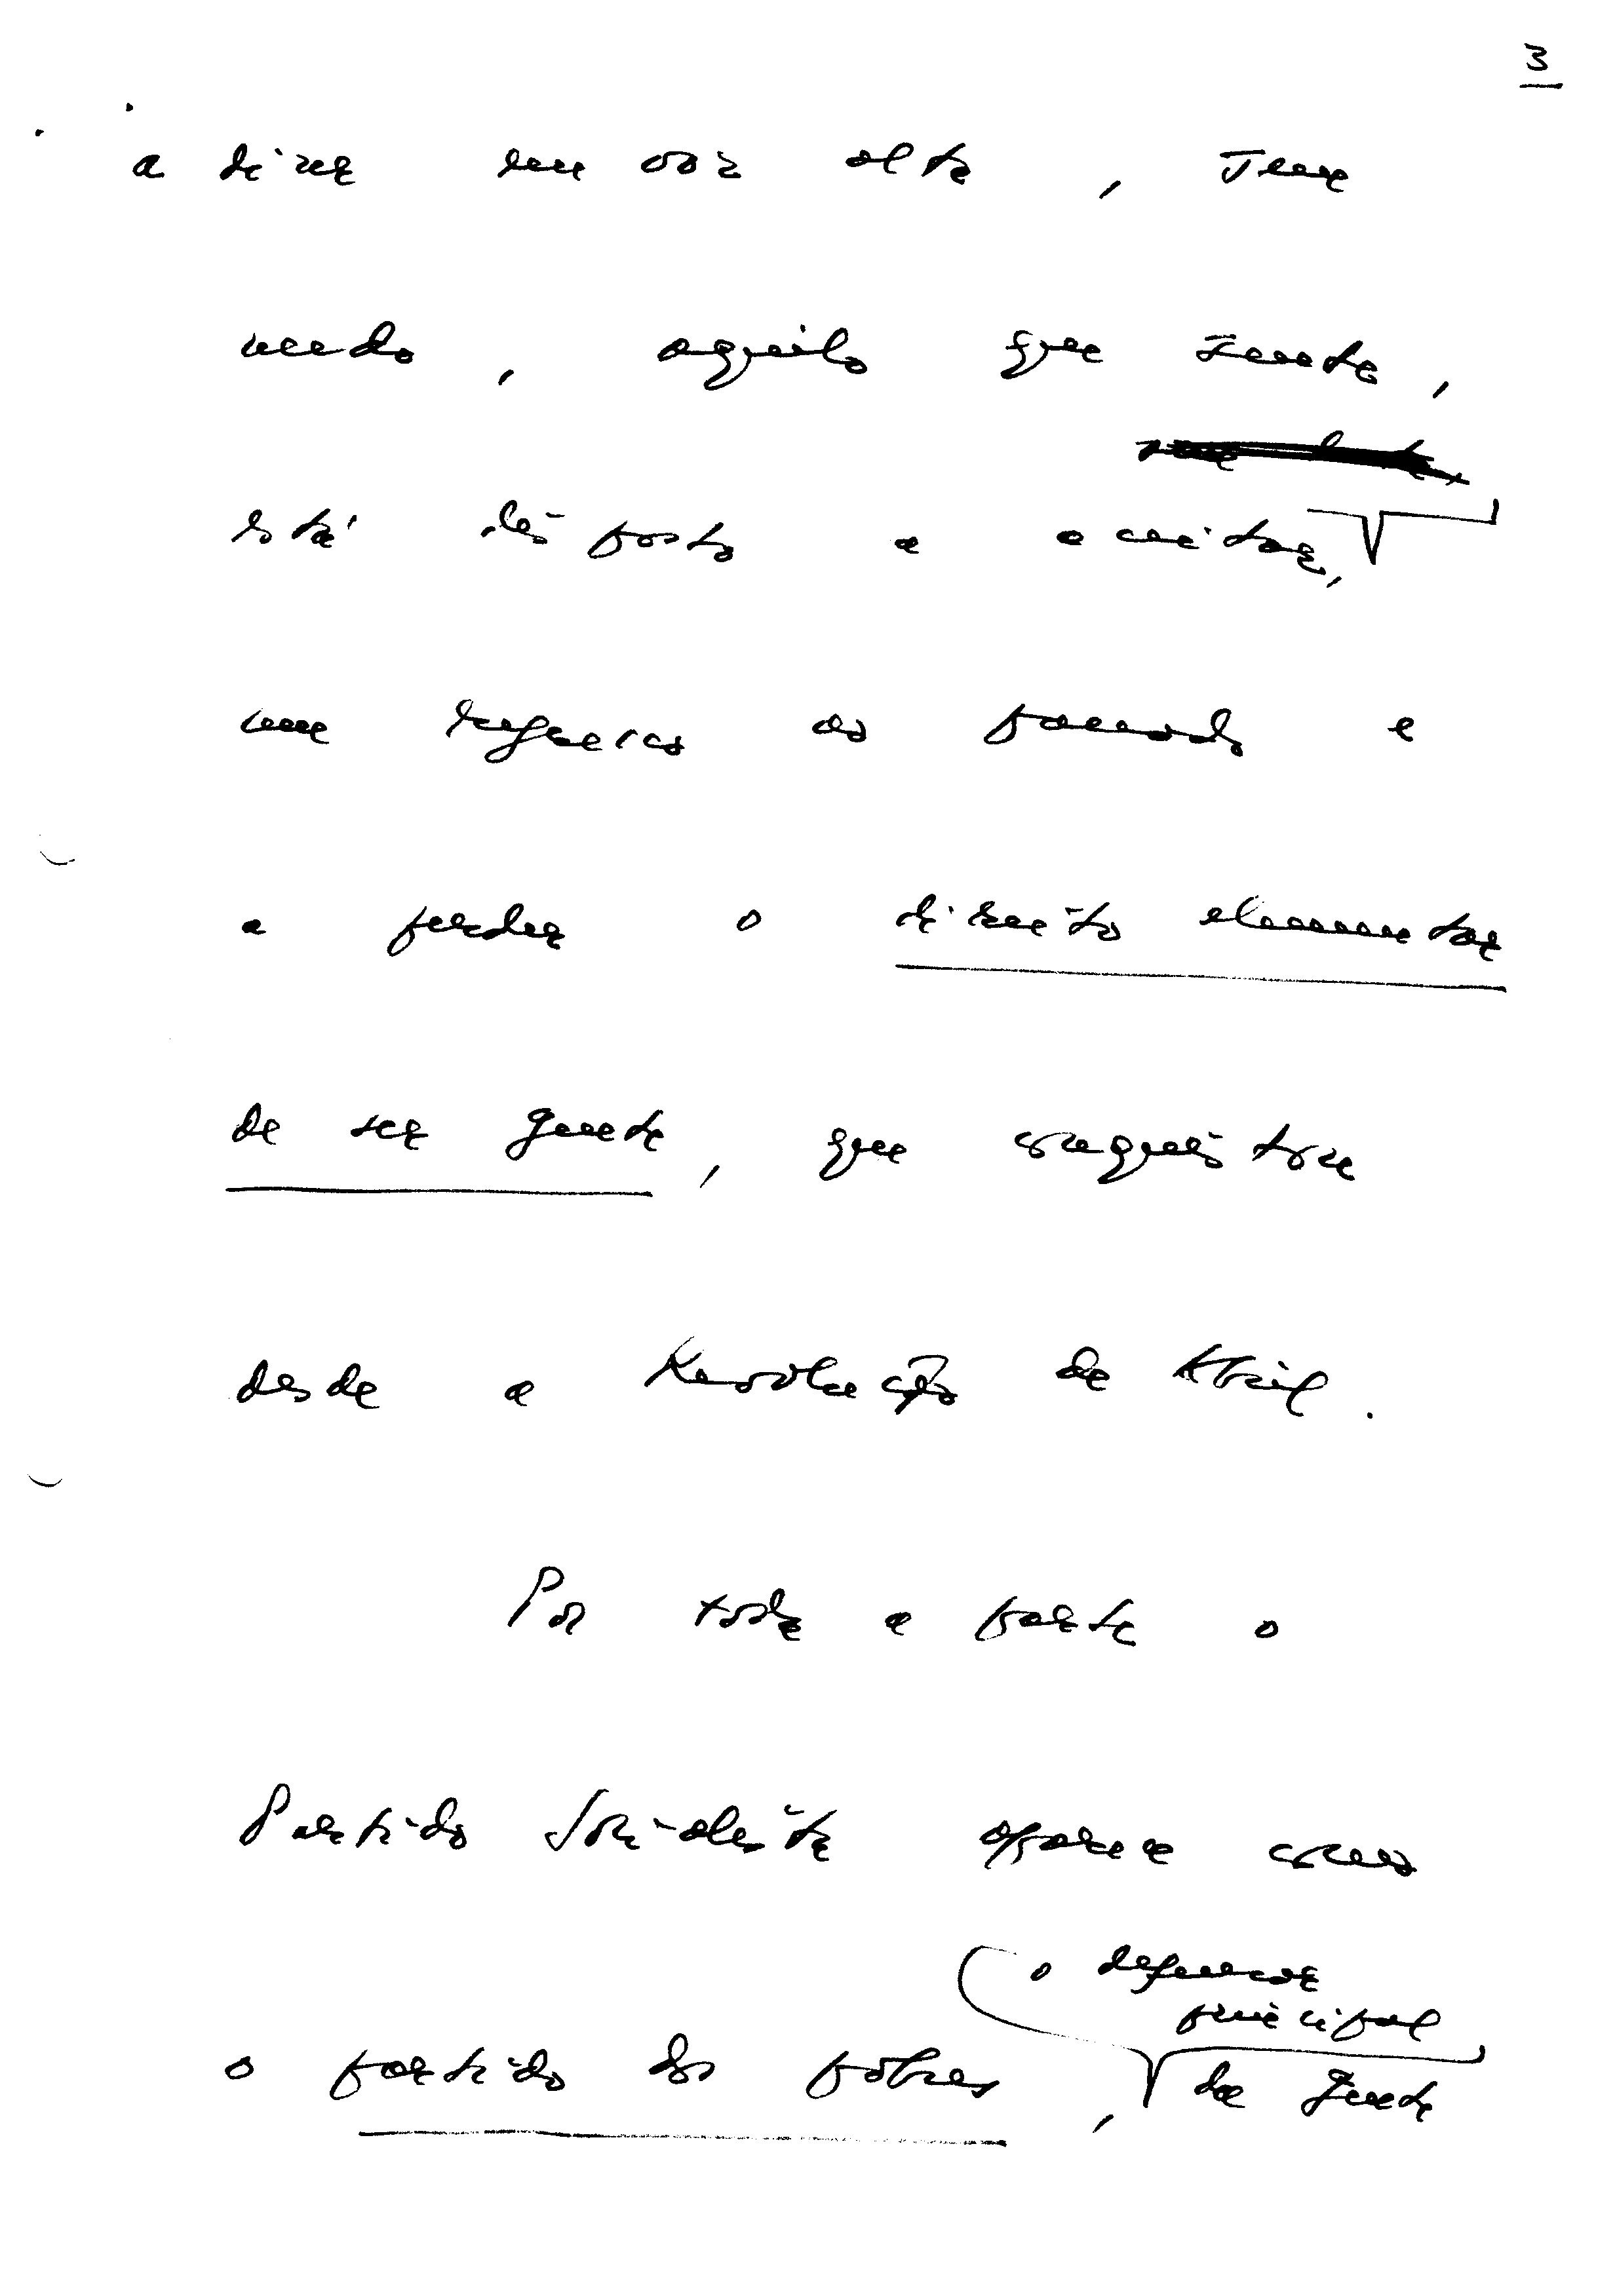 3
a dizer em voz alta, sem
medo, aquilo que sente,
está disposto a aceitar,
um regresso ao passado e
a perder o direito elementar
de ser gente, que conquistou
desde a Revolução de Abril.
Por toda a parte o
Partido Socialista aparece como
o defensor
principal
o partido dos pobres, da gente